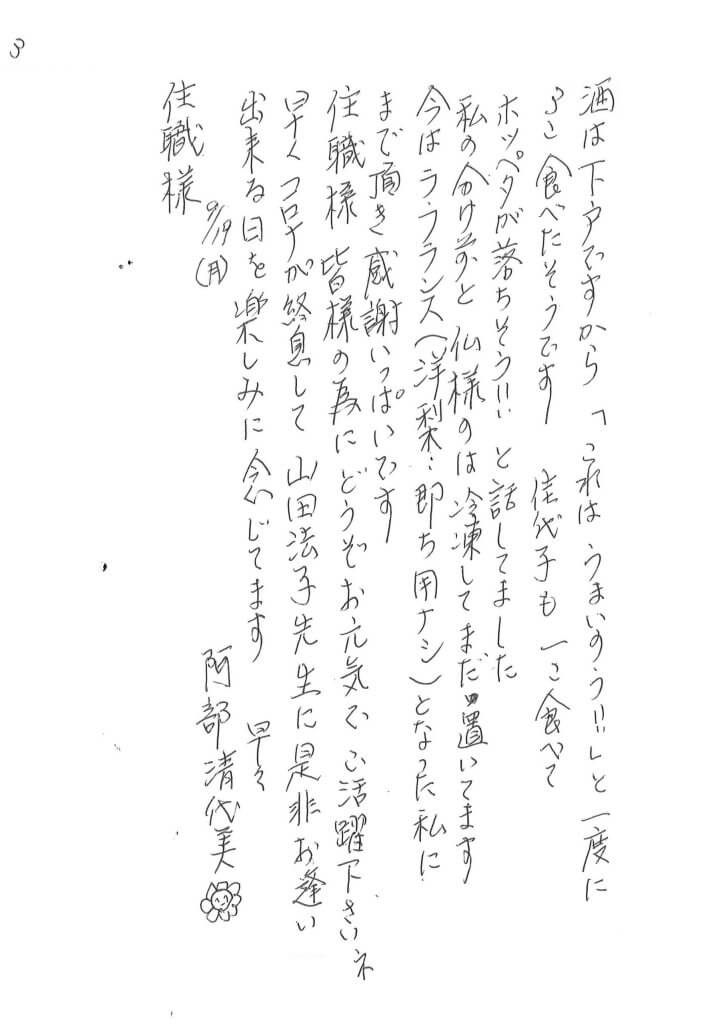 3
酒は下戸ですから「これはうまいのう!!」と一度に
3こ食べたそうです　佳代子も一こ食べて
ホッペタが落ちそう!!と話してました
私の分け前と仏様のは冷凍してまだ置いてます
今はラフランス(洋梨…即ち用ナシ)となった私に
まで頂き感謝いっぱいです
住職様皆様の為にどうぞお元気でご活躍下さいネ
早くコロナが終息して山田法子先生に是非お逢い
出来る日を楽しみに念じてます　早々
9/19(月)　阿部清代美
住職様